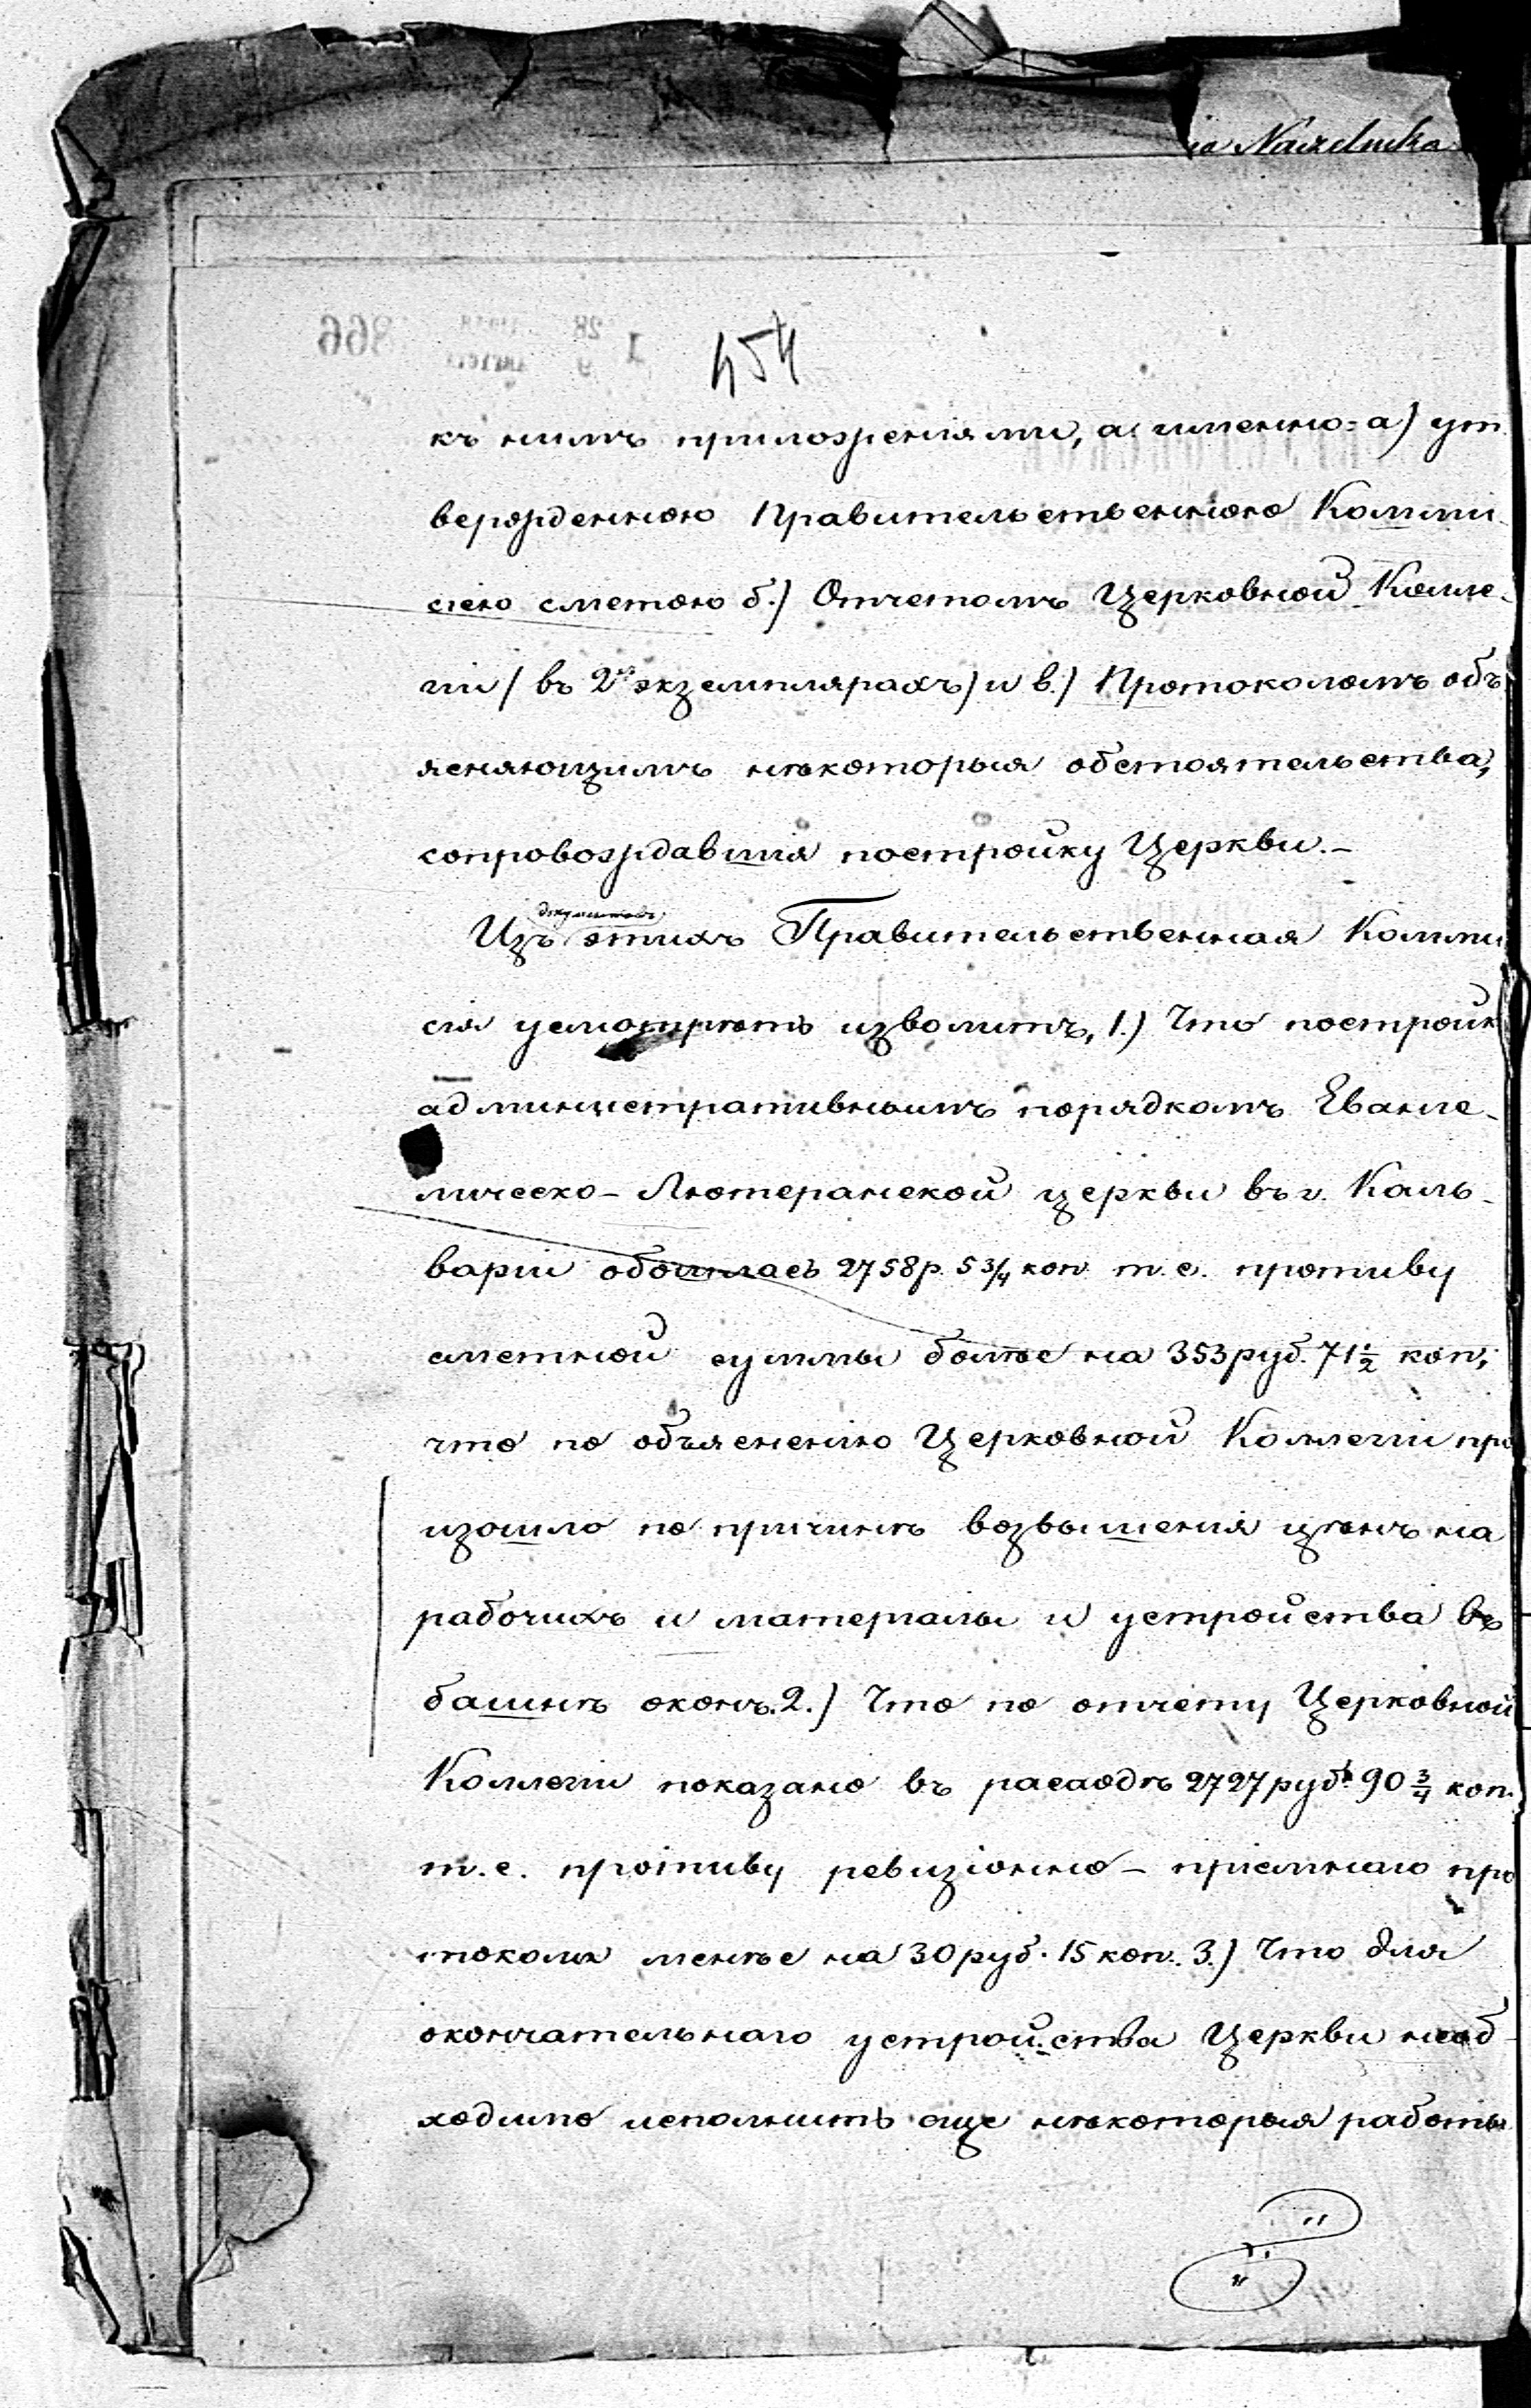 Naczelnika
454
къ нимъ приложеніями, а именно: а) ут
вержденною Правительственною Комми-
сіею сметою б.) Отчетомъ Церковной Колле-
гіи (въ 2хъ экземплярахъ) и в.) Протоколомъ объ
ясняющимъ нѣкоторыя обстоятельства,
сопровождавшія постройку Церкви.–
документовъ
Изъ этихъ Правительственная Комми
сія усмотрѣть изволитъ, 1.) Что постройк
административнымъ порядкомъ Евангe-
лическо-Лютеранской церкви въ г. Каль-
варіи обошлась 2758 р. 5 3/4 коп. т. е. противу
сметной суммы болѣе на 353 руб. 71 1/2 коп;
что по объясненію Церковной Коллегіи про
изошло по причинѣ возвышенія цѣнъ на
рабочихъ и матеріалы и устройства въ
башнѣ оконъ. 2.) Что по отчету Церковной
Коллегіи показано въ расходѣ 2727 руб. 90 3/4 коп.
т. е. противу ревизіонно-пріемнаго про
токола менѣе на 30 руб. 15 коп. 3.) Что для
окончательнаго устройства Церкви необ-
ходимо исполнить еще нѣкоторыя работы